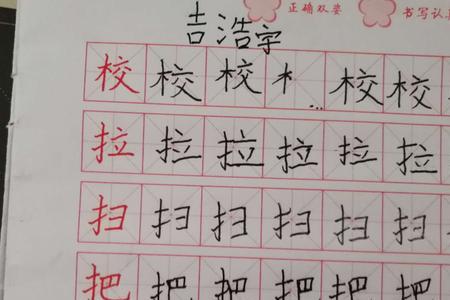 正确双姿
书写认真
吉浩宇
校校校木校校
拉拉拉拉拉拉
扫扫扫扫扫扫
把把把把把把